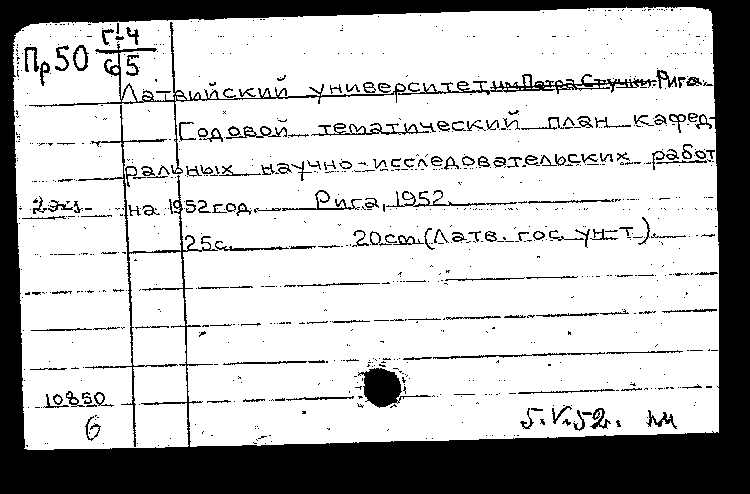 Пр50 Г-4
65
Латвийский университет им. Петра Стучки. Рига.
Годовой тематический план кафед-
ральных научно-исследовательских работ
2 экз. на 1952 год. Рига, 1952.
25с. 20cm. (Латв. гос. ун-т).
10850
6
5.V.52.